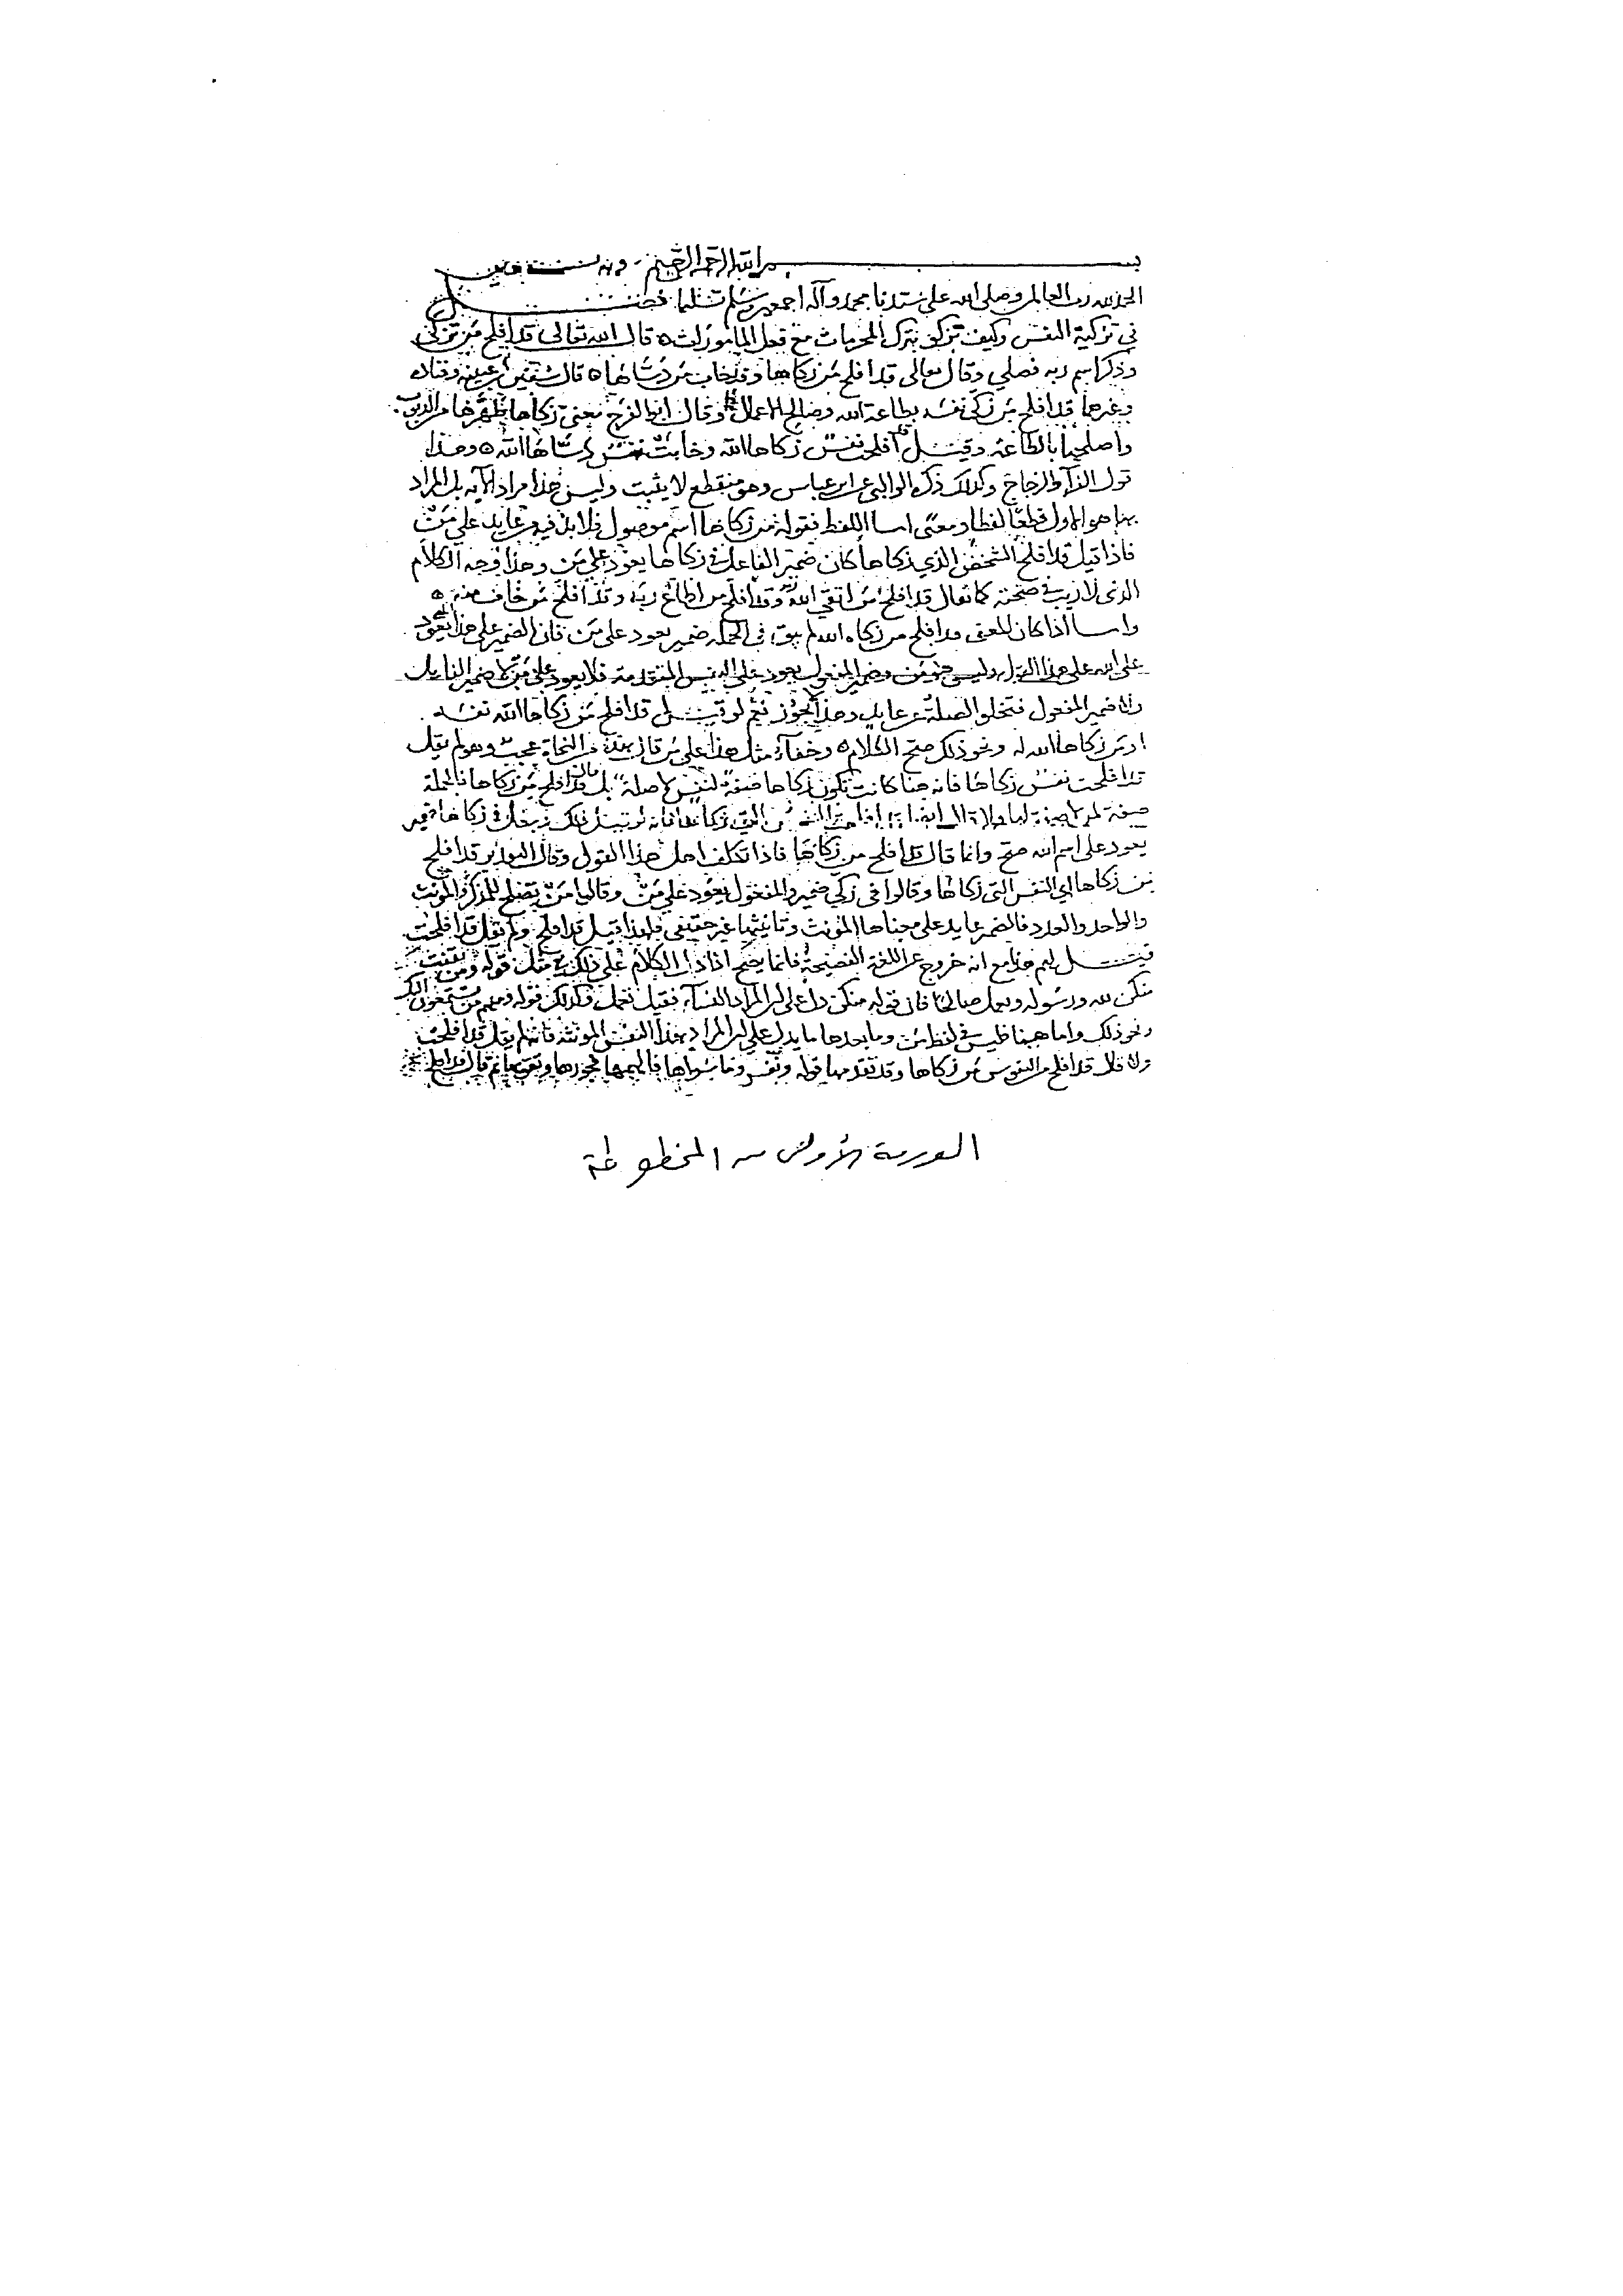 بسم الله الرحمن الرحيم وبه نستعين
الحمد لله رب العالمين وصلى الله على سيدنا محمد وآله اجمعين وسلم تسليما فصل
في تزكية النفس وكيف تزكو بترك المحرمات مع فعل المامورات ه قال الله تعالى قد افلح من تزكى
وذكر اسم ربه فصلي وقال تعالى قد افلح من زكاها وقد خاب من دساها ه قال سفين بن عيينه وقتاده
وغيرهما قد افلح من زكى نفسه بطاعة الله وصالح الاعمال وقال ابو الفرج معنى زكاها طهرها من الذنوب
واصلحها بالطاعة وقيل قد افلحت نفس زكاها الله وخابت نفس دساها الله ه وهذا
قول الفرآ والزجاج وكذلك ذكره الوالبي عن ابن عباس وهو منقطع لا يثبت وليس هذا مراد الآيه بل المراد
بها هو الاول قطعا لفظا ومعنى اما اللفظ فقوله من زكاها اسم موصول فلا بد فيه من عايد على من
فاذا قيل قد افلح الشخص الذي زكاها كان ضمير الفاعل في زكاها يعود على من وهذا وجه الكلام
الذي لا ريب في صحته كما يقال قد افلح من اتقى الله وقد افلح من اطاع ربه وقد افلح من خاف منه ه
واما اذا كان المعنى قد افلح من زكاه الله لم يبق في الجملة ضمير يعود على من فان الضمير على هذا يعود
على الله وليس هو من وضمير المفعول يعود على النفس المتقدمة فلا يعود على من لا ضمير الفاعل
ولا ضمير المفعول فتخلوا الصلة من عايد وهذا لا يجوز نعم لو قيل قد افلح من زكاها الله نفسه
او من زكاها الله له ونحو ذلك صح الكلام ه وخفآء مثل هذا على من قال بهذا من النحاة عجب وهو لم يقل
قد افلحت نفس زكاها فانه هنا كانت تكون زكاها صفة لنفس لا صلة بل قال قد افلح من زكاها فالجملة
صلة لمن لا صفة لها
يعود على اسم الله صح وانما قال قد افلح من زكاها فاذا تكلف اهل هذا القول وقالوا التقدير قد افلح
من زكاها اي النفس التي زكاها وقالوا في زكى ضمير المفعول يعود على من وقالوا من يصلح للمذكر والمونث
والواحد والعدد فالضمير عايد على معناها المونث وتانيثها غير حقيقي فلهذا قيل قد افلح ولم يقل قد افلحت
قيل لهم هذا مع انه خروج عن اللغة الفصيحة فانما يصح اذا دل الكلام على ذلك في مثل قوله ومن يقنت
منكن لله ورسوله وتعمل صالحا فان قوله منكن دل على ان المراد النسآء فقيل تعمل وكذلك قوله ومنهم من يستمعون اليك
ونحو ذلك واما هاهنا فليس في لفظ من وما بعدها ما يدل على ان المراد بهذا النفس المونثة فانه لم يقل قد افلحت
ولا قال قد افلح من النفوس من زكاها وقد تقدمها قوله ونفس وما سواها فالهمها فجورها وتقواها ثم قال قد افلح
الورقة الأولى من المخطوطة